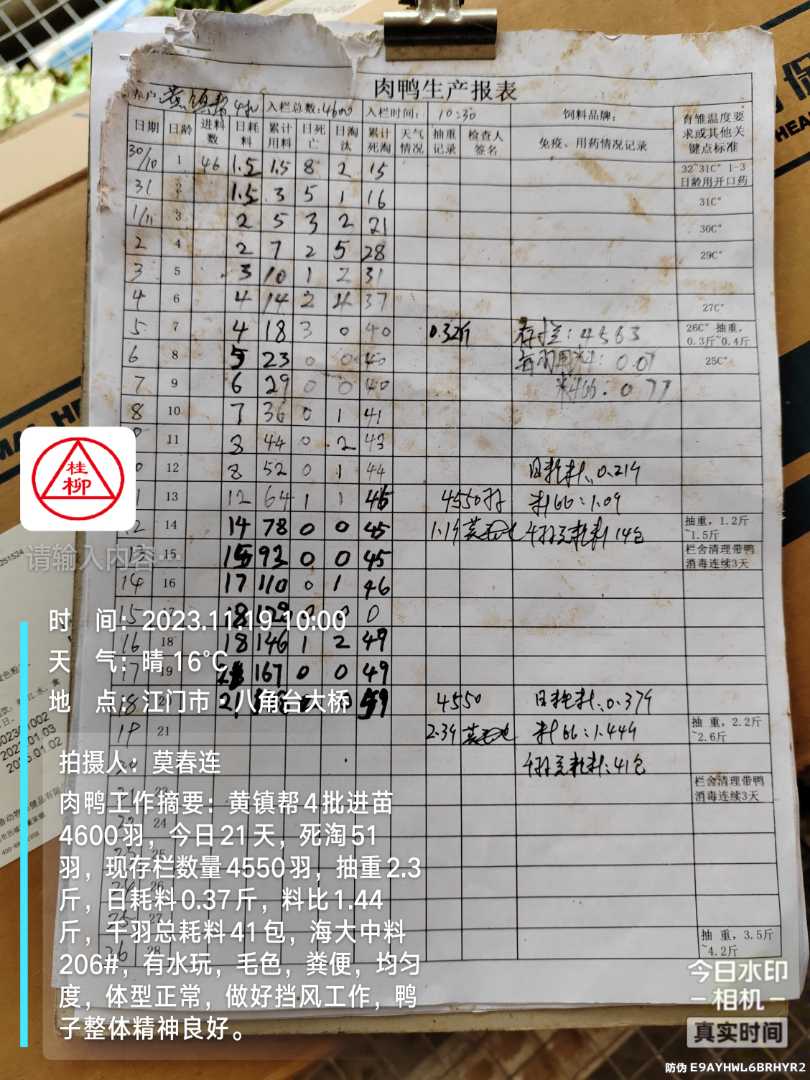 肉鸭生产报表
养户 黄镇帮4批 入栏总数:4600 入栏时间: 10:30 饲料品牌: 育雏温度要求或其他关键点标准
日期 日龄 进料数 日耗料 累计用料 日死亡 日淘汰 累计死淘 天气情况 抽重记录 检查人签名 免疫、用药情况记录
30/10 1 46 1.5 1.5 8 2 15 32~31C° 1-3日龄用开口药
31 2 1.5 3 5 1 16 31C°
1/11 3 2 5 3 2 21 30C°
2 4 2 7 2 5 28 29C°
3 5 3 10 1 2 31
4 6 4 14 2 4 37 27C°
5 7 4 18 3 0 40 0.32斤 存栏:4563 26C° 抽重,0.3斤~0.4斤
6 8 5 23 0 0 40 每羽用料:0.07 25C°
7 9 6 29 0 0 40 料比:0.77
8 10 7 36 0 1 41
11 8 44 0 2 43
12 8 52 0 1 44 日耗料:0.219
13 12 64 1 1 45 4550羽 料比:1.09
14 14 78 0 0 45 1.19 千羽总耗料14包 抽重,1.2斤~1.5斤
13 15 15 93 0 0 45 栏舍清理带鸭消毒连续3天
14 16 17 110 0 1 46
15 17 18 128 0 0 0
16 18 18 146 1 2 49
17 19 167 0 0 49
18 4550 日耗料:0.379
19 21 2.39 料比:1.449 抽重,2.2斤~2.6斤
20 千羽总耗料:41包
栏舍清理带鸭消毒连续3天
24
25
26
27
26 28 抽重,3.5斤~4.2斤
桂柳
请输入内容…
时 间:2023.11.19 10:00
天 气:晴 16℃
地 点:江门市·八角台大桥
拍摄人:莫春连
肉鸭工作摘要:黄镇帮4批进苗
4600羽,今日21天,死淘51
羽,现存栏数量4550羽,抽重2.3
斤,日耗料0.37斤,料比1.44
斤,千羽总耗料41包,海大中料
206#,有水玩,毛色,粪便,均匀
度,体型正常,做好挡风工作,鸭
子整体精神良好。
今日水印
相机
真实时间
防伪 E9AYHWL6BRHYR2